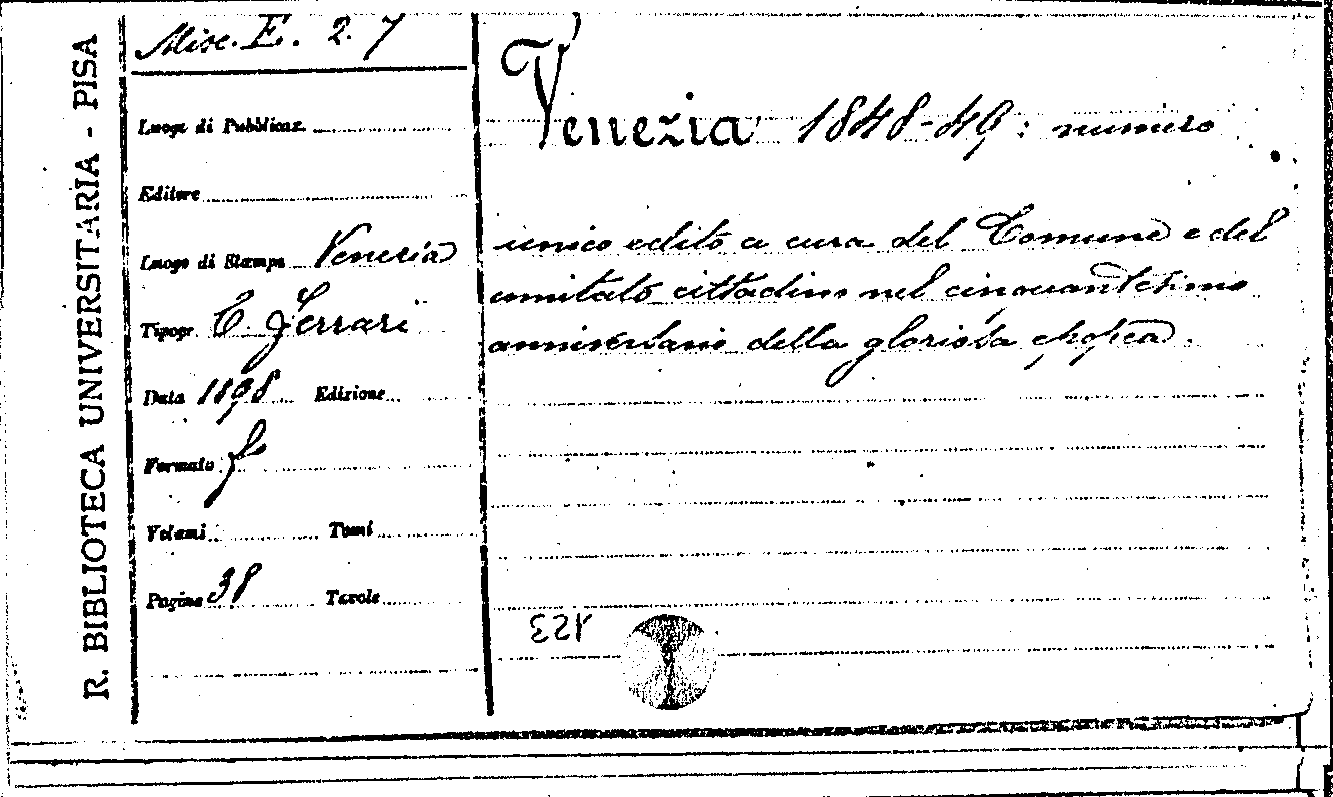 R. BIBLIOTECA UNIVERSITARIA - PISA
Misc. E. 2. 7
Luogo di Pubblicaz.
Editore
Luogo di Stampa Venezia
Tipogr. C. Ferrari
Data 1898 Edizione
Formato f°
Volumi Tomi
Pagine 38 Tavole
Venezia 1848-49: numero
unico edito a cura del Comune e del
comitato cittadino nel cinquantesimo
anniversario della gloriosa epopea.